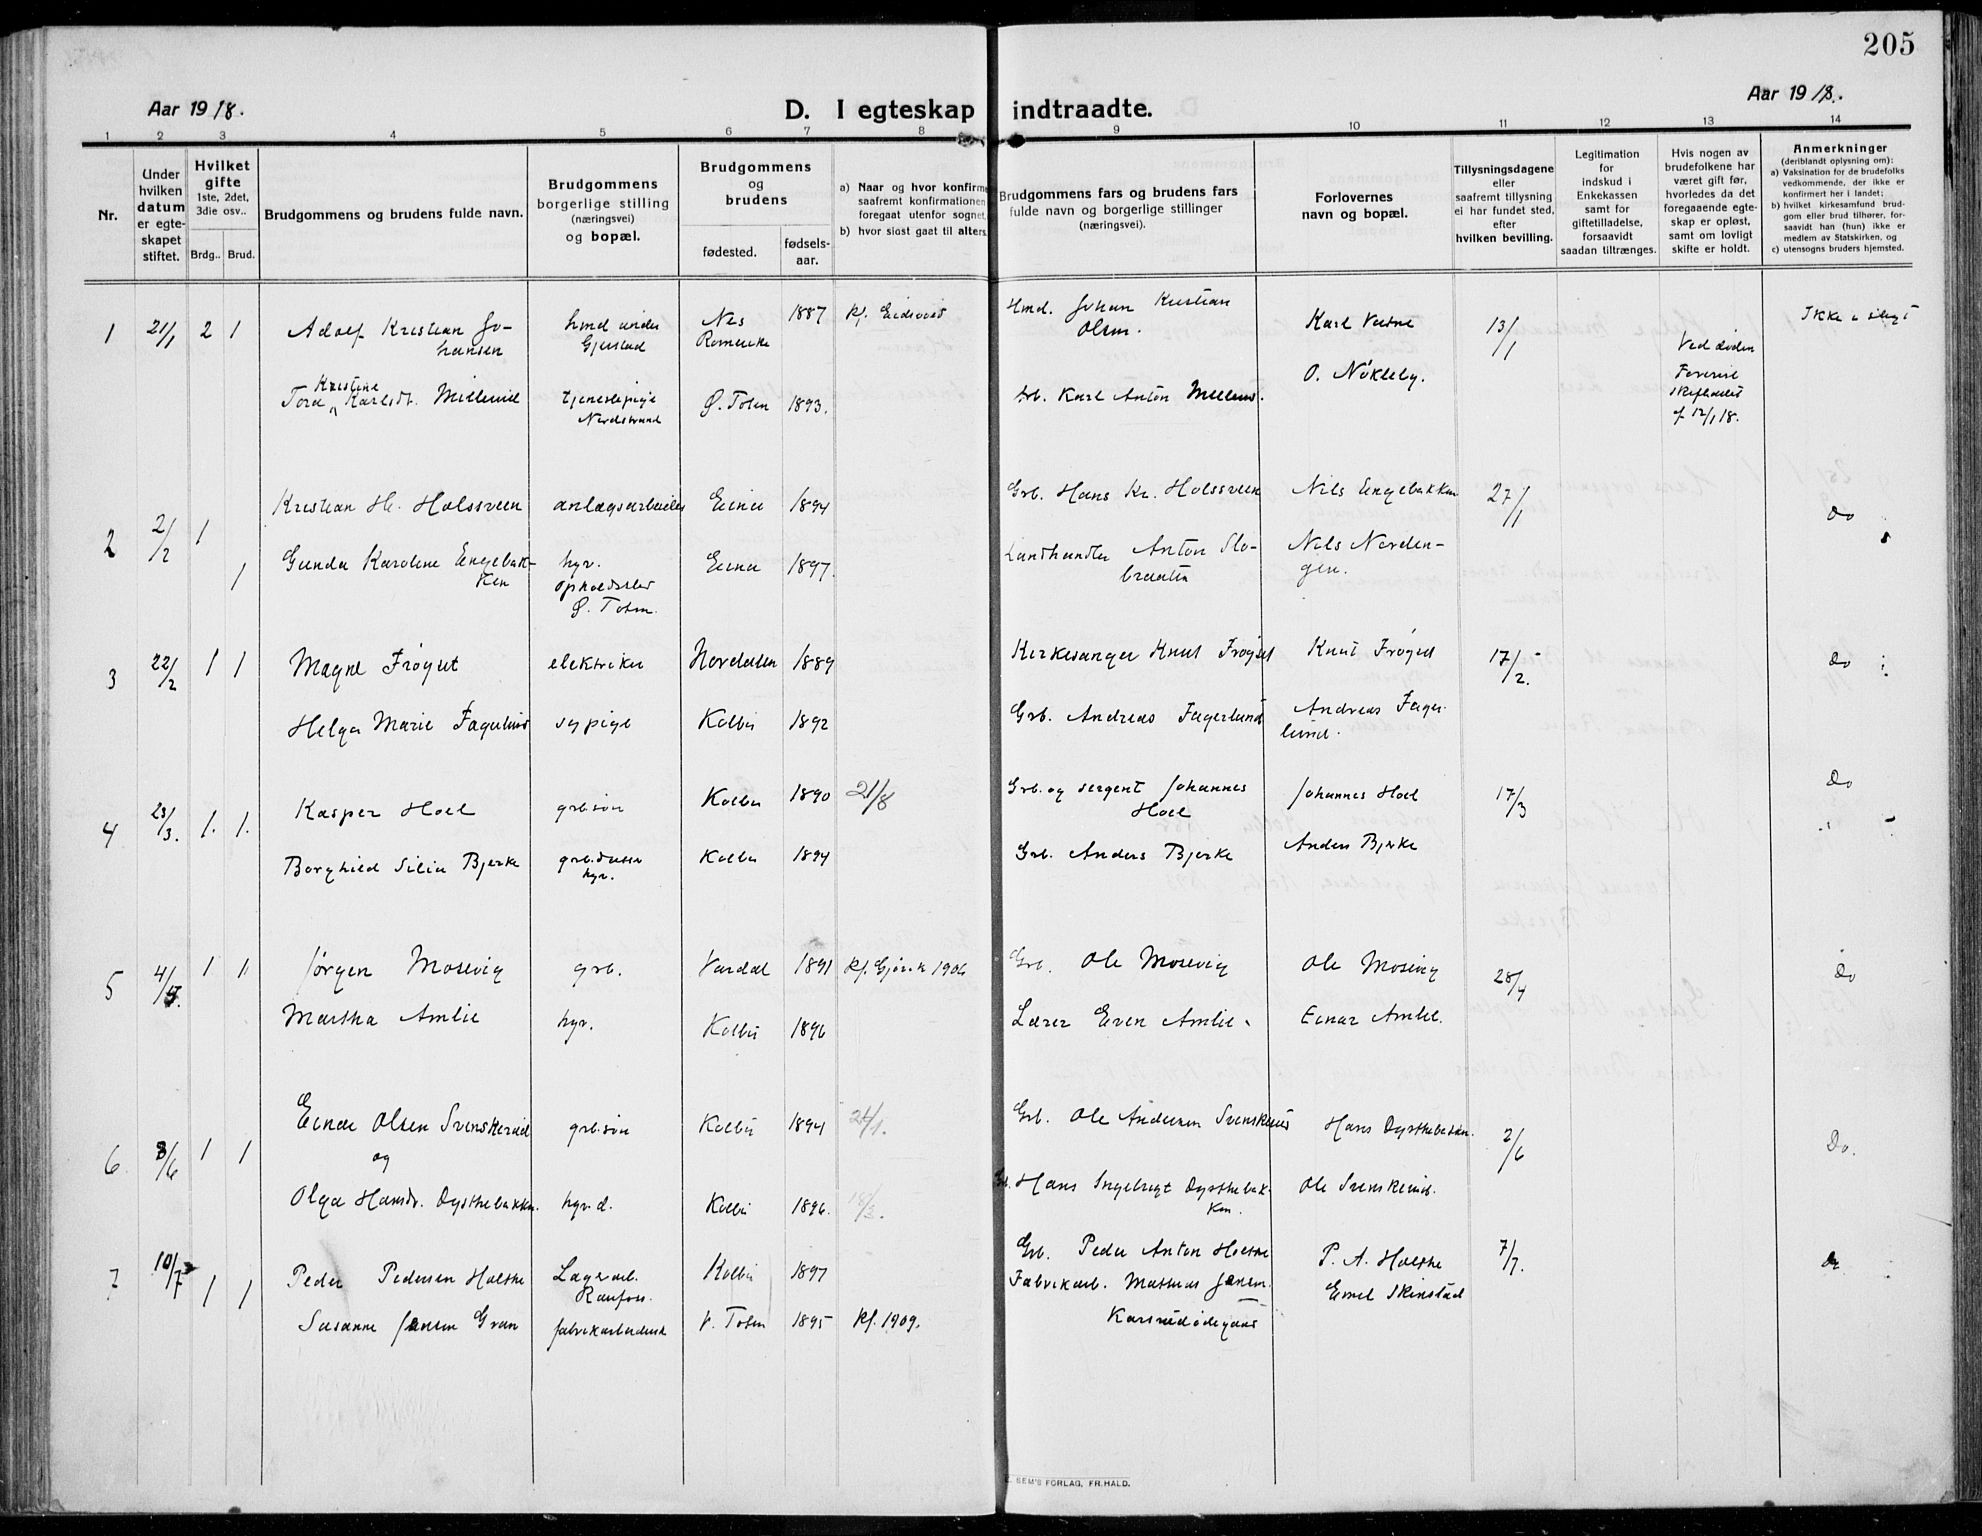 205
Aar 1918.
D. I egteskap indtraadte.
Aar 1918.
1 2 3 4 5 6 7 8 9 10 11 12 13 14
Nr.
Under
hvilken
datum
er egte-
skapet
stiftet.
Hvilket
gifte
1ste, 2det,
3die osv..
Brdg.. Brud.
Brudgommens og brudens fulde navn.
Brudgommens
borgerlige stilling
(næringsvei)
og bopæl.
Brudgommens
og
brudens
fødested.
fødsels-
aar.
a) Naar og hvor konfirm
saafremt konfirmationen
foregaat utenfor sognet,
b) hvor sidst gaat til alters.
Brudgommens fars og brudens fars
fulde navn og borgerlige stillinger
(næringsvei).
Forlovernes
navn og bopæl.
Tillysningsdagene
eller
saafremt tillysning
ei har fundet sted,
efter
hvilken bevilling.
Legitimation
for
indskud i
Enkekassen
samt for
giftetilladelse,
forsaavidt
saadan tiltrænges.
Hvis nogen av
brudefolkene har
været gift før,
hvorledes da det
foregaaende egte-
skap er opløst,
samt om lovligt
skifte er holdt.
Anmerkninger
(deriblandt oplysning om):
a) Vaksination for de brudefolks
vedkommende, der ikke er
konfirmert her i landet;
b) hvilket kirkesamfund brud-
gom eller brud tilhører, for-
saavidt han (hun) ikke er
medlem av Statskirken, og
c) utensogns bruders hjemsted.
1 21/1 2 1 Adolf Kristian Jo-
hansen
hmd under
Gjerstad
Nes
Romerike
1887 Kf. Eidsvold
Hmd. Johan Kristian
Olsen.
Karl
13/1
Ved døden
12/1 18.
Ikke i slegt
Kristine
Tora Karlsdt.
tjenestepige
Nordstrand
Ø. Toten 1893.
Karl Anton
O. Nøkleby.
2 2/2 1 Kristian H. Holssveen anlægsarbeider Eina 1894 Grb. Hans Kr. Holssveen Nils Engebakken 27/1 Do
1 Gunda Karoline Engebak-
ken
hyr.
Ø. Toten.
Eina 1897. Landhandler Anton Slo-
braaten
Nils Norden-
gen.
3 22/2 1 1 Magne Frøyset elektriker Norddalen 1889 Kirkesanger Knut Frøyset Knut Frøyset 17/2. Do
Helga Marie Fagerlund sypige Kolbu 1892 Grb. Andreas Fagerlund Andreas Fager-
lund.
4 23/3. 1. 1. Kasper Hoel grb.søn Kolbu 1890 21/8 Grb. og sergent Johannes
Hoel
Johannes Hoel 17/3 Do
Borghild Silia Bjerke grb.datter
hyr.
Kolbu 1894 Grb. Anders Bjerke Anders Bjerke
5 4/5. 1 1 Jørgen Mosevig grb. Vardal 1891 Kf. Gjøvik 1906 Grb. Ole Mosevig Ole Mosevig 28/4 Do
Martha Amlie hyr. Kolbu 1896 Lærer Even Amlie Einar Amlie.
6 8/6 1 1 Einar Olsen Svenskerud
og
grb.søn Kolbu 1894 24/1. Grb. Ole Andersen Svenskerud Hans Dysthebakken. 2/6 Do.
Olga Hansdr. Dysthebakken. hyr.d. Kolbu 1896. 18/3. Grb. Hans Ingebregt Dysthebak-
ken.
Ole Svenskerud.
7 10/7 1 1 Peder Pedersen Holthe Lagerarb.
Raufoss.
Kolbu 1897 Grb. Peder Anton Holthe P. A. Holthe 7/7. Do
Susanne Jensen Gran fabrikarbeiderske V. Toten 1895 Kf. 1909. Fabrikarb. Mathias Jensen.
Emil Skinstad
E. SEM'S FORLAG, FR.HALD.